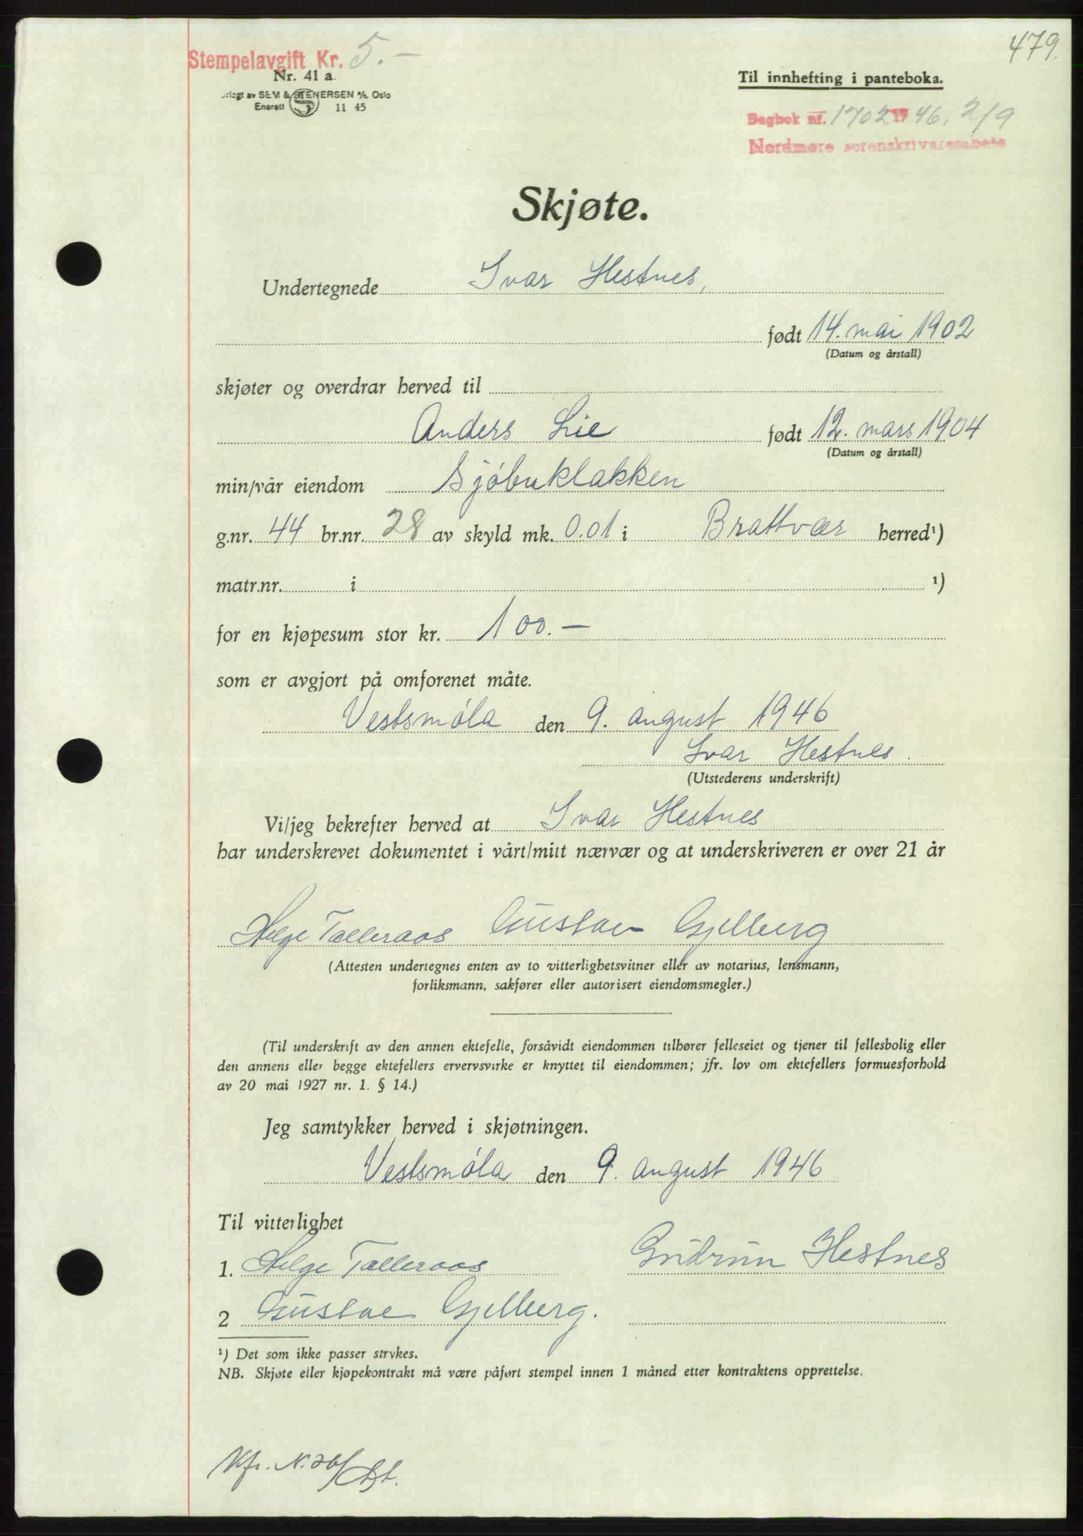 479.
Stempelavgift Kr. 5.-
Nr. 41 a.
Til innhefting i panteboka.
SEM & STENERSEN A/S, Oslo
Enerett 11 45
Dagbok nr. 1702 1946, 2/9
Nordmøre sorenskrivarembete
Skjøte.
Undertegnede Ivar Hestnes,
født 14. mai 1902
(Datum og årstall)
skjøter og overdrar herved til
Anders Lie født 12. mars 1904
(Datum og årstall)
min/vår eiendom Sjøbuklakken
g.nr. 44 br.nr. 28 av skyld mk. 0.01 i Brattvær herred¹)
matr.nr. i ¹)
for en kjøpesum stor kr. 100.—
som er avgjort på omforenet måte.
Vestsmøla den 9. august 1946
Ivar Hestnes.
(Utstederens underskrift)
Vi/jeg bekrefter herved at Ivar Hestnes
har underskrevet dokumentet i vårt/mitt nærvær og at underskriveren er over 21 år
Helge Talleraas Gustav Gjelberg
(Attesten undertegnes enten av to vitterlighetsvitner eller av notarius, lensmann,
forliksmann, sakfører eller autorisert eiendomsmegler.)
(Til underskrift av den annen ektefelle, forsåvidt eiendommen tilhører felleseiet og tjener til fellesbolig eller
den annens eller begge ektefellers ervervsvirke er knyttet til eiendommen; jfr. lov om ektefellers formuesforhold
av 20 mai 1927 nr. 1. § 14.)
Jeg samtykker herved i skjøtningen.
Vestsmøla den 9. august 1946
Til vitterlighet
1. Helge Talleraas Gudrun Hestnes
2 Gustav Gjelberg.
¹) Det som ikke passer strykes.
NB. Skjøte eller kjøpekontrakt må være påført stempel innen 1 måned etter kontraktens opprettelse.